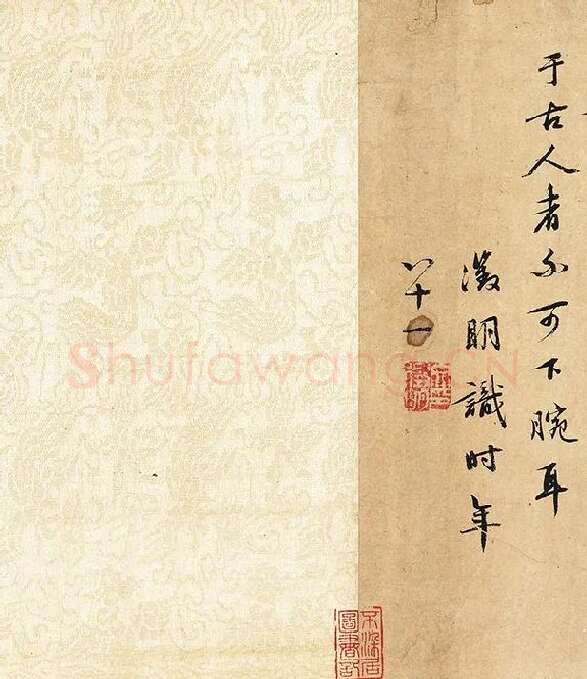 于古人者不可下腕耳
徵明識时年
八十一
Shufawang.CN